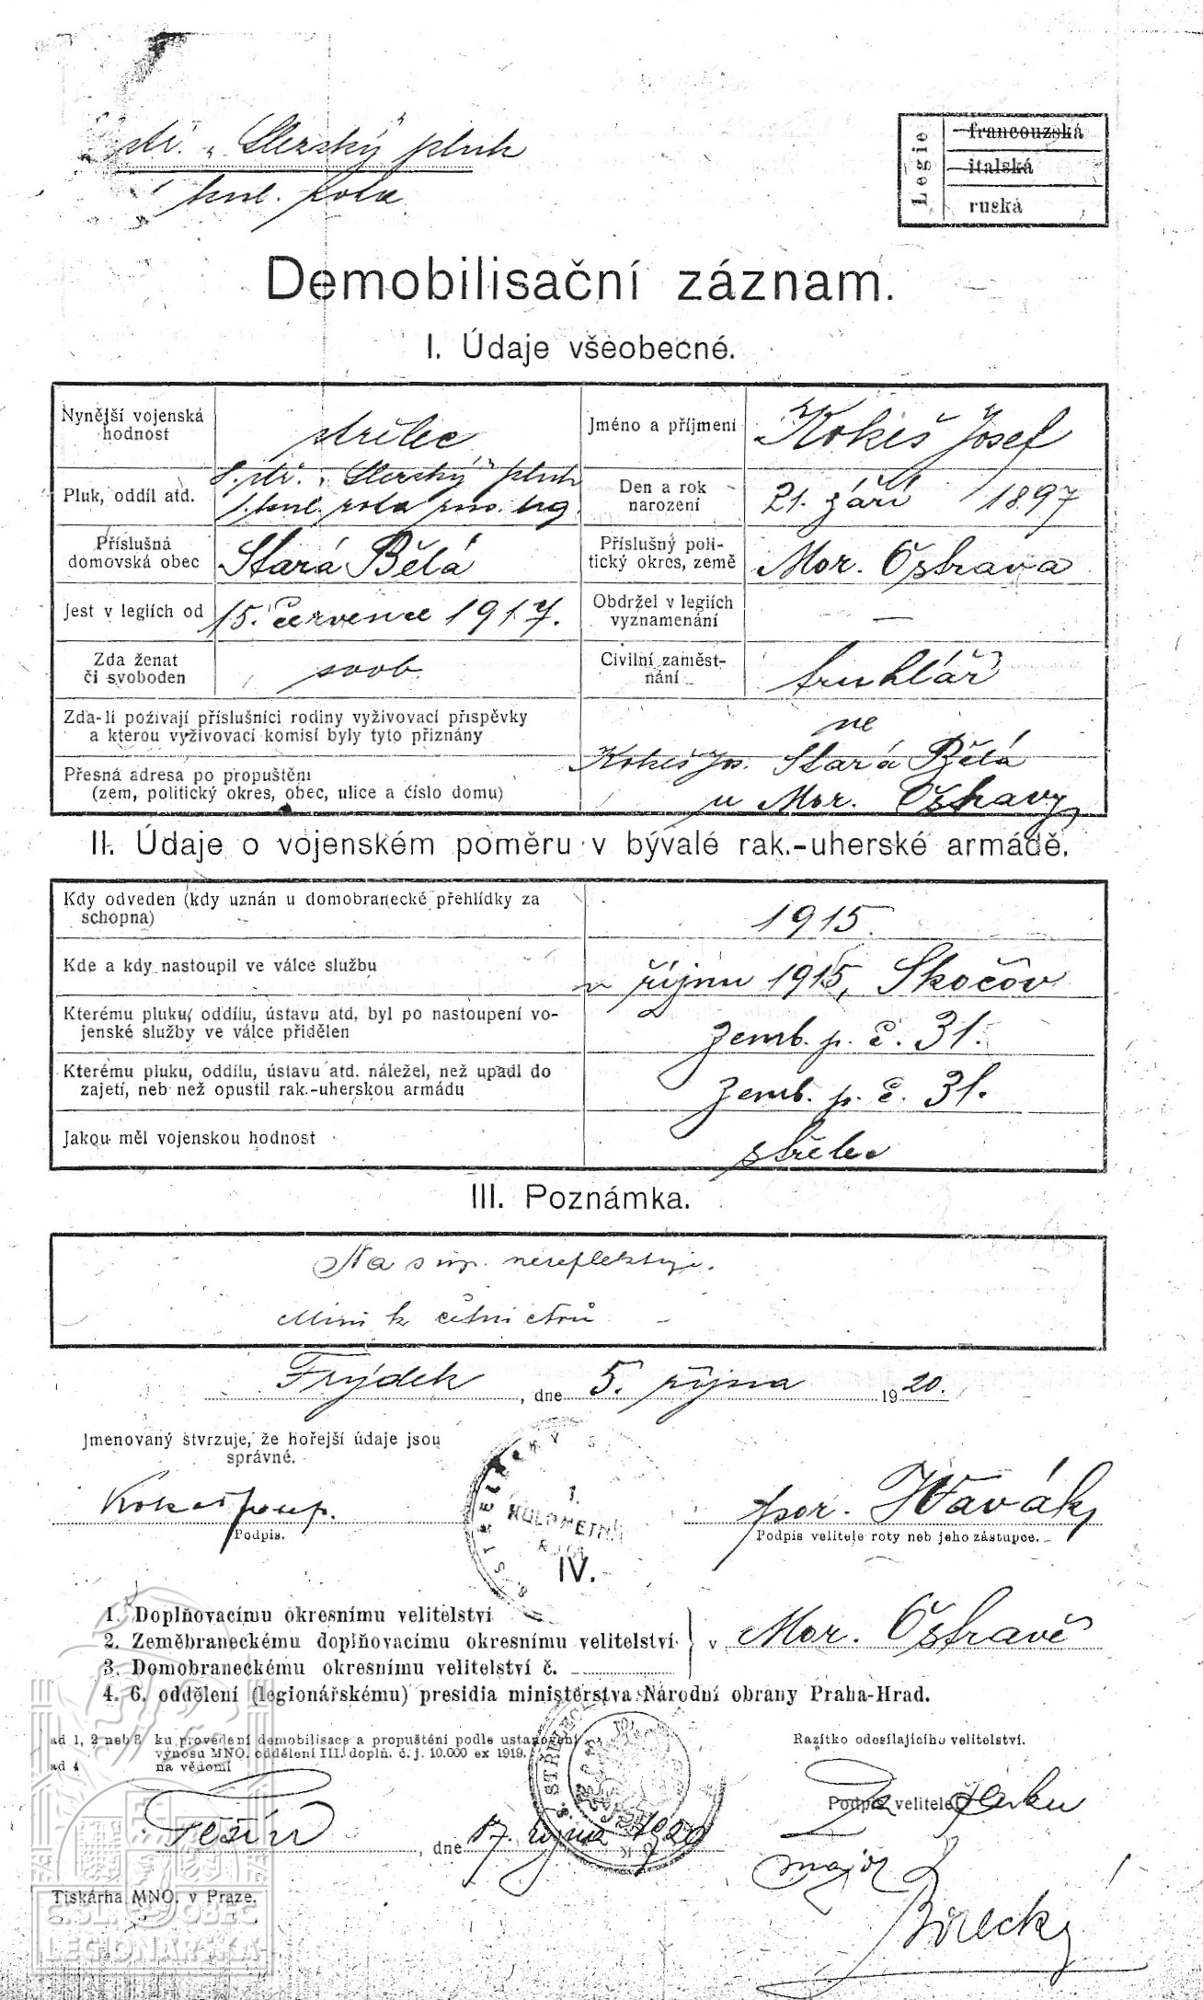 stř. „Slezský" pluk
kul. rota
Legie
francouzská
italská
ruská
Demobilisační záznam.
I. Údaje všeobecné.
Nynější vojenská
hodnost
střelec
Jméno a příjmení
Kokeš Josef
Pluk, oddíl atd.
8. stř. „Slezský" pluk
1. kul. rota
Den a rok
narození
21. září 1897
Příslušná
domovská obec
Stará Bělá
Příslušný poli-
tický okres, země
Mor. Ostrava
Jest v legiích od
15. července 1917.
Obdržel v legiích
vyznamenání
—
Zda ženat
či svoboden
svob.
Civilní zaměst-
nání
truhlář
Zda-li požívají příslušníci rodiny vyživovací příspěvky
a kterou vyživovací komisí byly tyto přiznány
ne
Přesná adresa po propuštění
(zem, politický okres, obec, ulice a číslo domu)
Kokeš Jos. Stará Bělá
u Mor. Ostravy
II. Údaje o vojenském poměru v bývalé rak.-uherské armádě.
Kdy odveden (kdy uznán u domobranecké přehlídky za
schopna)
1915.
Kde a kdy nastoupil ve válce službu
v říjnu 1915, Skočov
Kterému pluku, oddílu, ústavu atd, byl po nastoupení vo-
jenské služby ve válce přidělen
zemb. p. č. 31.
Kterému pluku, oddílu, ústavu atd. náležel, než upadl do
zajetí, neb než opustil rak.-uherskou armádu
zemb. p. č. 31.
Jakou měl vojenskou hodnost
střelec
III. Poznámka.
Na sup. nereflektuje.
Míní k četnictvu
Frýdek, dne 5. října 1920.
Jmenovaný stvrzuje, že hořejší údaje jsou
správné.
Kokeš Josef.
Podpis.
1.
KULOMETNÁ
ROTA
por. Hlavák
Podpis velitele roty neb jeho zástupce.
IV.
1. Doplňovacímu okresnímu velitelství
2. Zeměbraneckému doplňovacímu okresnímu velitelství
3. Domobraneckému okresnímu velitelství č.
v Mor. Ostravě
4. 6. oddělení (legionářskému) presidia ministerstva Národní obrany Praha-Hrad.
ad 1, 2 neb 3 ku provedení demobilisace a propuštění podle ustanovení
výnosu MNO. oddělení III. doplň. č. j. 10.000 ex 1919.
ad 4 na vědomí
Razítko odesílajícího velitelství.
Těšín, dne 17. října 1920
Podpis velitele
Za
major
Tiskárna MNO. v Praze.
ČSL. OBEC
LEGIONÁŘSKÁ